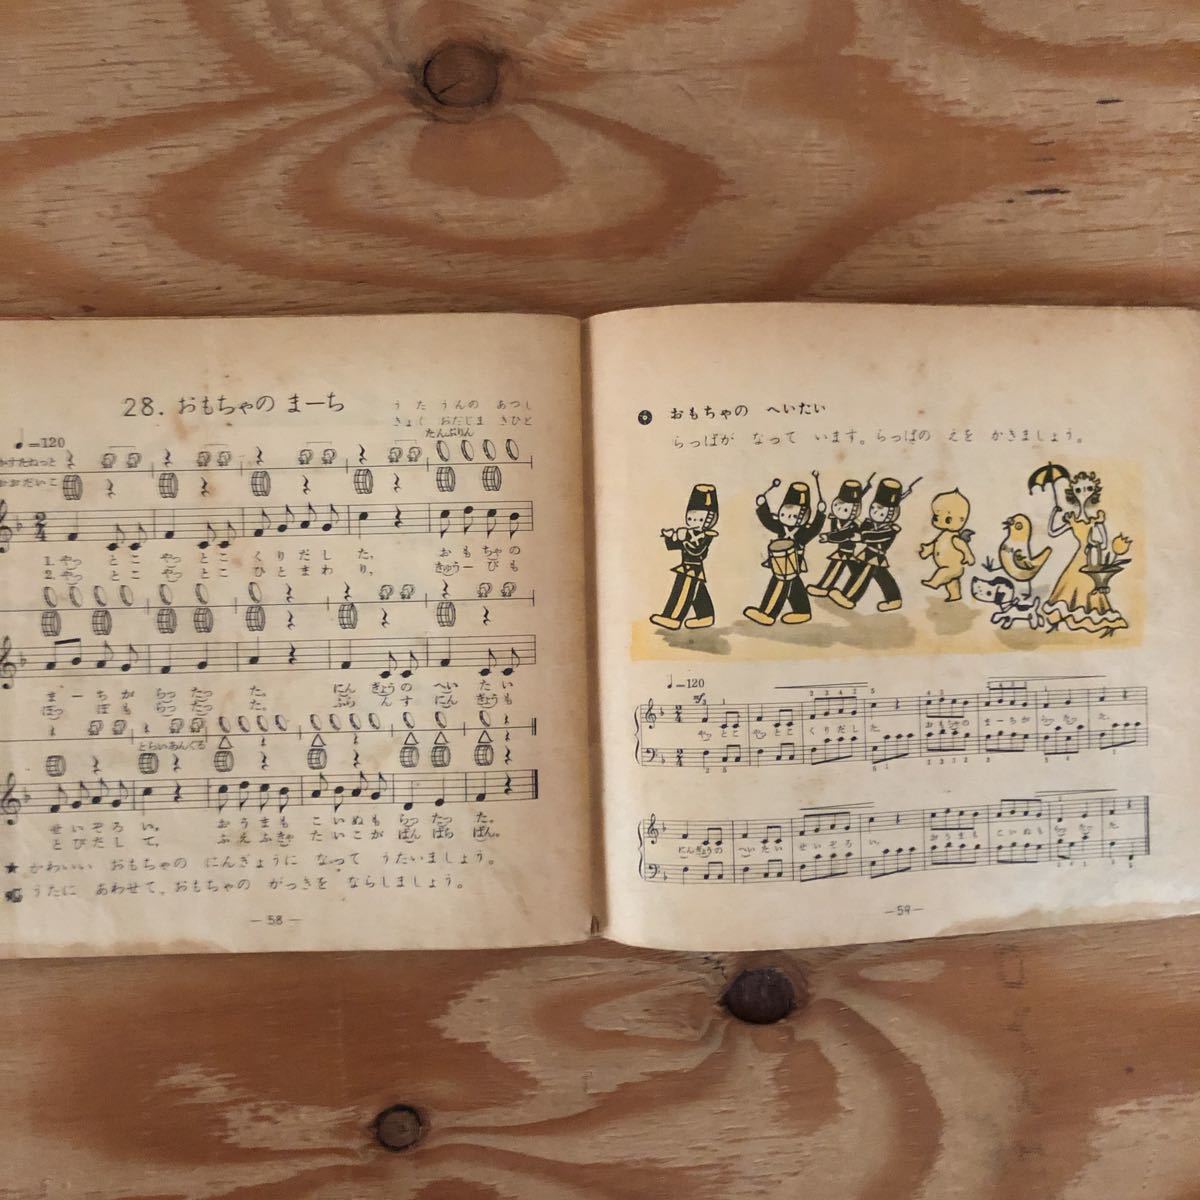 28. おもちゃの まーち
うた うんの あつし
きょく おだじま きひと
♩=120
たんぶりん
かすたねっと
おおだいこ
1. やっ とこ やっ とこ くりだし た, おもちゃの
2. やっ とこ やっ とこ ひとまわ り, きゅうーぴも
まーちが らっ たっ た. にん ぎょうの へい たい
ぽっ ぽも らっ たっ た. ふらんす にん ぎょうも
とらいあんぐる
せいぞろ い. おうまも こいぬも らっ たっ た.
とびだし て, ふえふきゃ たいこが ぱん ぱら ぱん.
★ かわいい おもちゃの にんぎょうに なって うたいましょう。
うたに あわせて, おもちゃの がっきを ならしましょう。
— 58 —
おもちゃの へいたい
らっぱが なって います。らっぱの えを かきましょう。
♩=120
mf
やっ とこ やっ とこ くりだし た, おもちゃの まーちが らっ たっ た.
にんぎょうの へいたい せいぞろ い. おうまも こいぬも らっ たっ た.
— 59 —